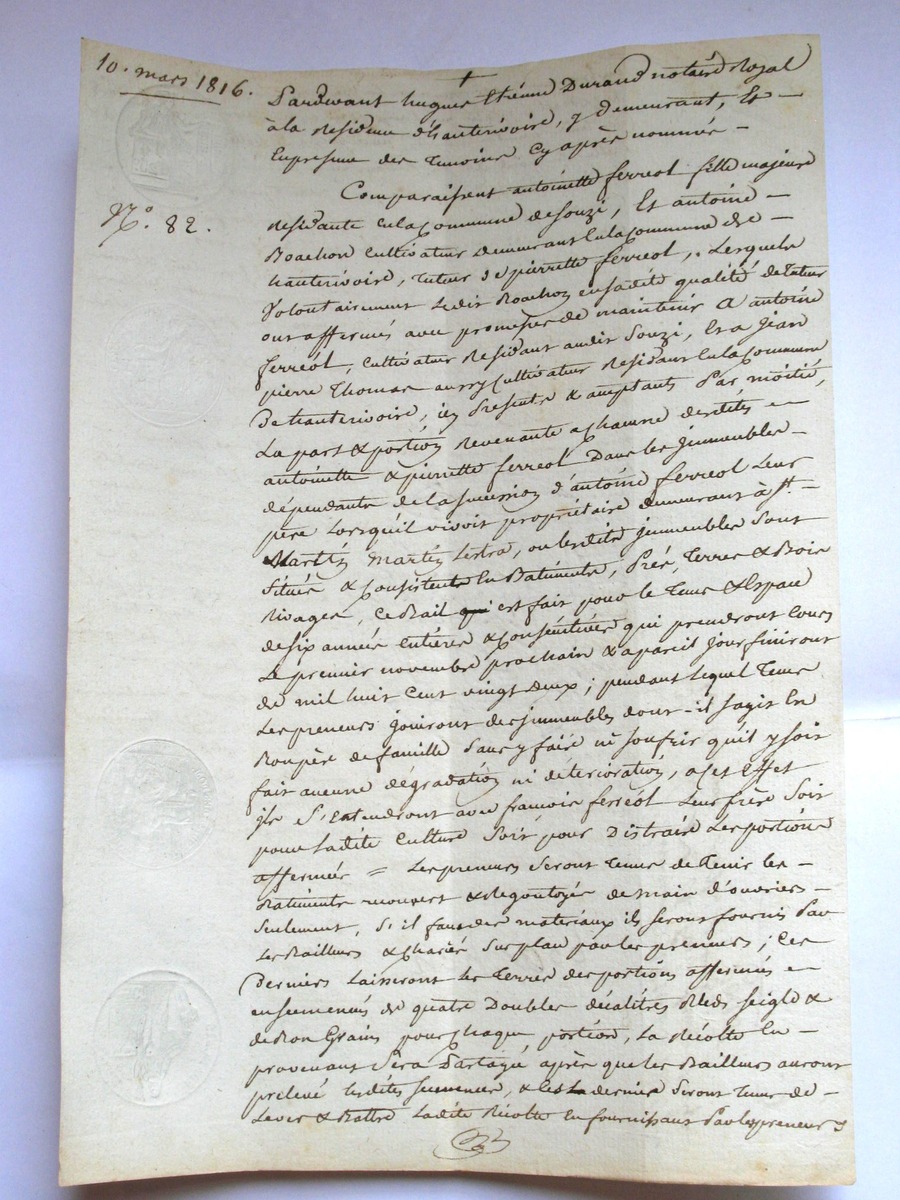 10. mars 1816.
N.º 82.
Pardevant hugues Etienne Durand notaire Royal
à la Residence d'hauterivoire, y demeurant, Et
En presence des temoins Cy après nommés
Comparaissent antoinette ferreol fille majeure
residante En la Commune de souzi, Et antoine
Boachon Cultivateur demeurant En la Commune de
hauterivoire, tuteur de pierrette ferreol, Lesquels
Volontairement Ledit Boachon en sadite qualité de tuteur
ont affermés avec promesse de maintenir a antoine
ferreol, Cultivateur Residant audit Souzi, Et a jean
pierre Thomas aussy Cultivateur Residant En la Commune
de hauterivoire, icy Presents & acceptants Par moitié,
La part & portion Revenante a chacune desdites
antoinette & pierrette ferreol Dans les jmmeubles
dépendants de la succession d'antoine ferreol Leur
père Lorsquil vivoit propriétaire demeurant à St.
Martin Lestra, ou lesdits jmmeubles sont
Situés & Consistents En Batiments, Prés, Terres & Bois
Rivages, Ce Bail est fait pour le Tems & Espace
de six années Entières & Consécutives qui prendront Cours
Le premier novembre prochain & a pareil jour finiront
de mil huit Cent vingt deux ; pendant lequel Tems
Les preneurs jouiront des jmmeubles dont il sagit En
Bon père de famille Sans y faire ni soufrir qu'il y soit
fait aucune dégradation ni détérioration, a cet Effet
jls S'Entendront avec françois ferréol Leur frère Soit
pour Ladite Culture Soit pour Distraire Les portions
affermées = Les preneurs seront Tenus de Tenir les
Batiments recouvert & Regoutoyés de main d'ouvriers
Seulement, S'il faut des materiaux ils seront fournis Par
Les Bailleurs & chariés sur place par les preneurs ; Ces
Derniers Laisseront les Terres des portions affermées
ensemencés de quatre Doubles décalitres Bleds seigle &
de Bon Grain pour Chaque portion, La Récolte En
provenant Sera Partagée après que les Bailleurs auront
prélevé lesdites semences, & Ces dernier Seront tenus de
Lever & Battre Ladite Récolte En fournissant Par les preneurs